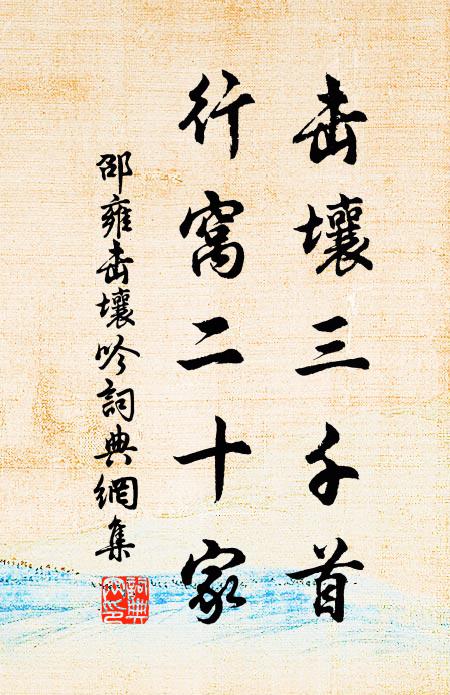 击壤三千首
行窝二十家
邵雍击壤吟词典網集